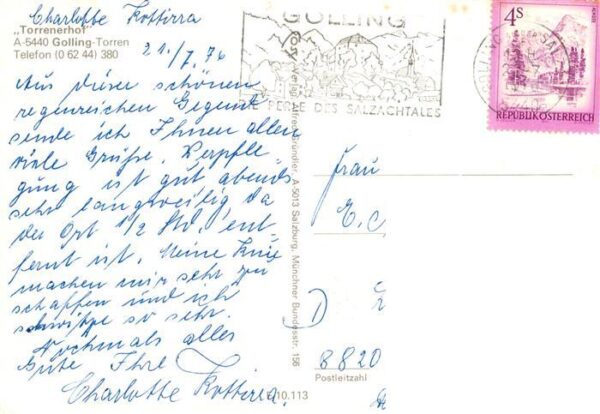 Charlotte Kottirra
"Torrenerhof"
A-5440 Golling-Torren
Telefon (0 62 44) 380
21./7. 76
Aus dieser schönen
regenreichen Gegend
sende ich Ihnen allen
viele Grüße. Verpfle-
gung ist gut abends
sehr langweilig da
der Ort 1/2 Std. ent-
fernt ist. Meine Knie
machen mir sehr zu
schaffen und ich
schwitze so sehr.
Nochmals alles
Gute Ihre
Charlotte Kottirra.
GOLLING
PERLE DES SALZACHTALES
4S
REPUBLIK ÖSTERREICH
A-5013 Salzburg, Münchner Bundesstr. 156
10.113
Frau
E. C.
D
8820
Postleitzahl